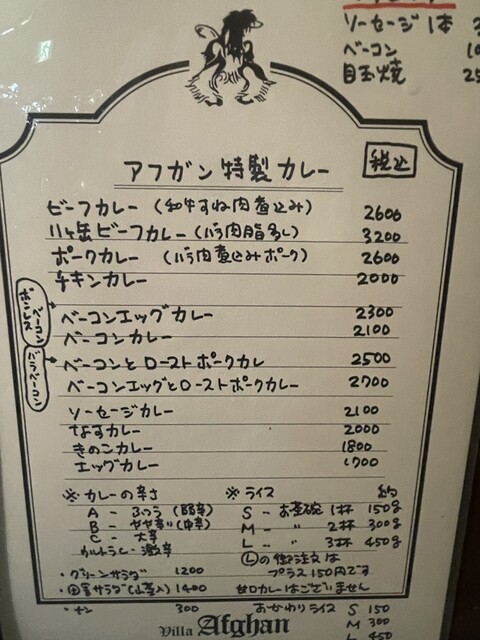 ソーセージ 1本
ベーコン
目玉焼
アフガン特製カレー 税込
ビーフカレー (和牛すね肉煮込み) 2600
八ヶ岳ビーフカレー (バラ肉脂多し) 3200
ポークカレー (バラ肉煮込みポーク) 2600
チキンカレー 2000
ベーコンエッグカレー 2300
ベーコンカレー 2100
ベーコンとローストポークカレー 2500
ベーコンエッグとローストポークカレー 2700
ソーセージカレー 2100
なすカレー 2000
きのこカレー 1800
エッグカレー 1700
※カレーの辛さ
A - ふつう
B - やや辛い (中辛)
C - 大辛
ウルトラC - 激辛
・グリーンサラダ 1200
サラダ 1400
・ナン 300
※ライス 約
S -- お茶碗 1杯 150g
M -- 〃 2杯 300g
L -- 〃 3杯 450g
Ⓛの御注文は
プラス150円です
甘口カレーはございません
おかわりライス S 150
M 300
L 450
Villa Afghan